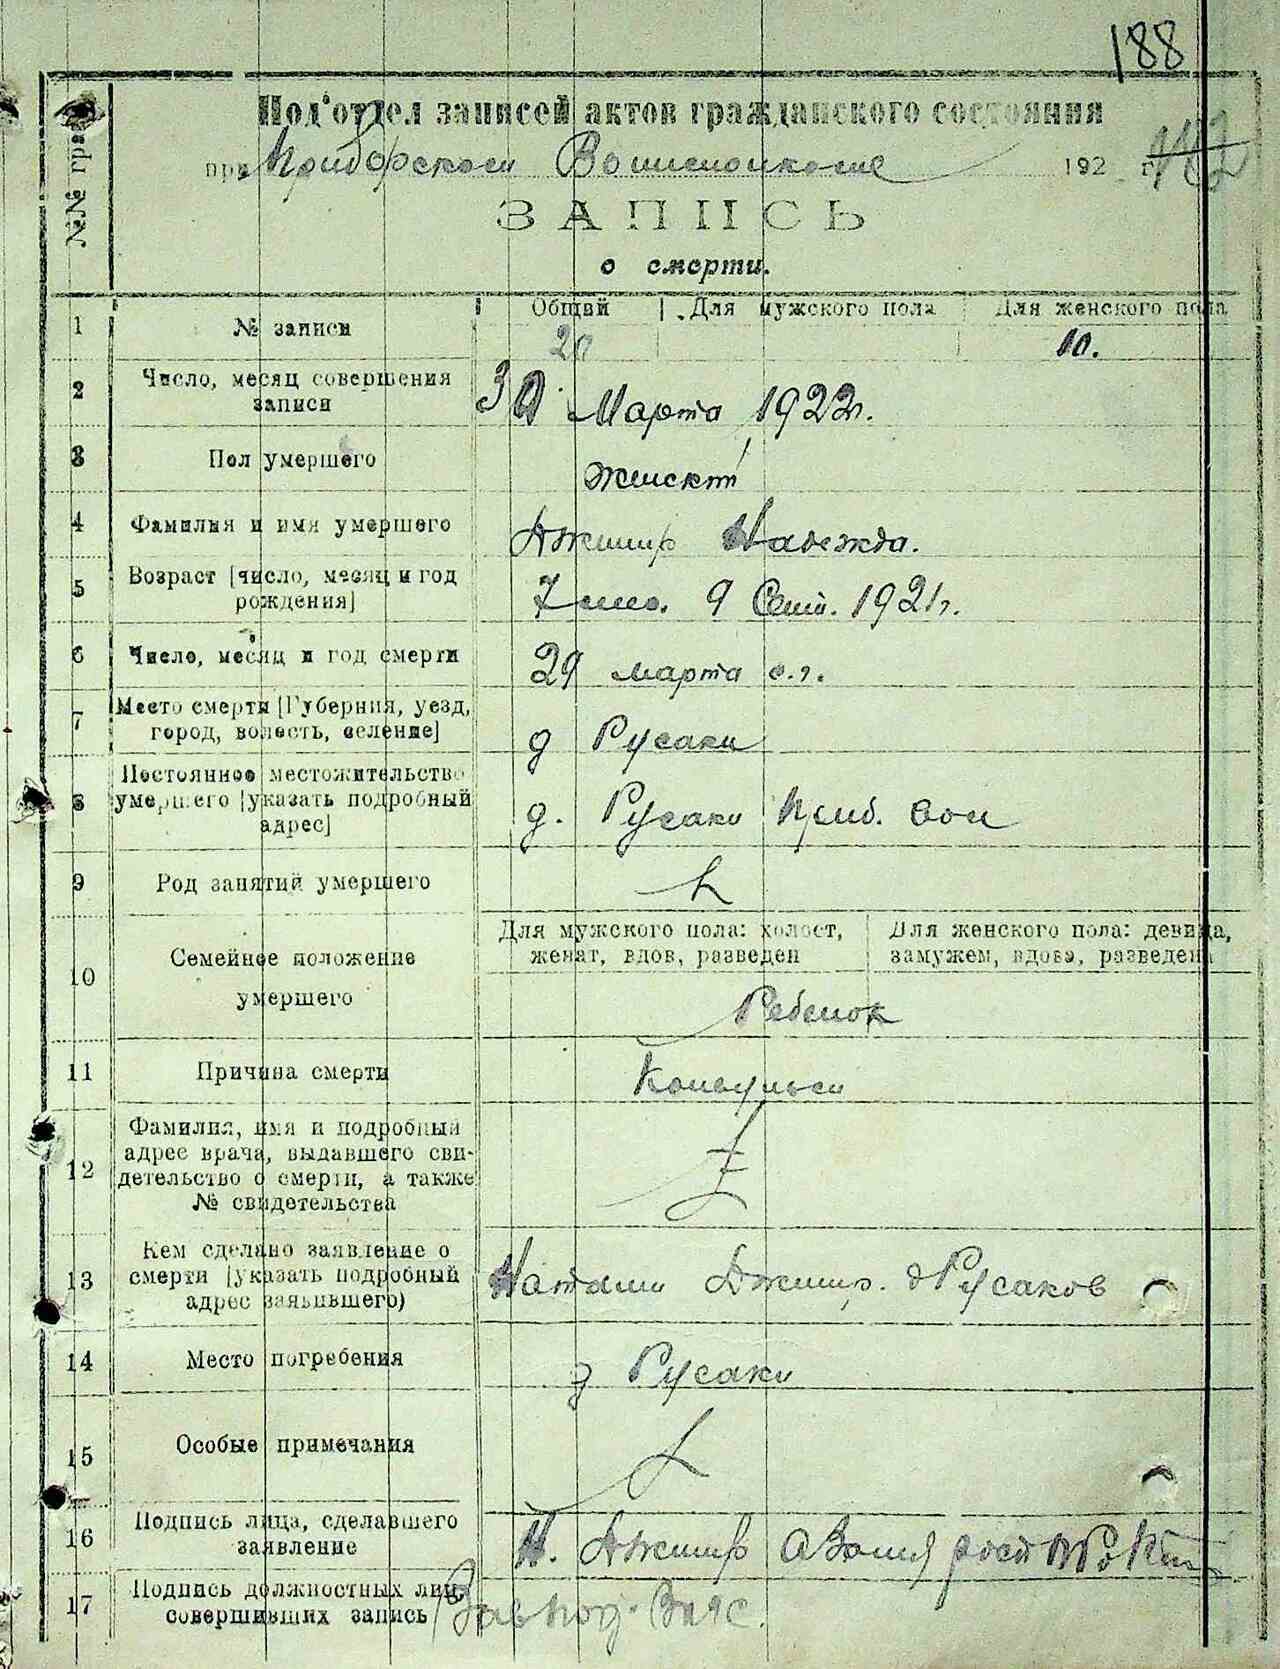 188
Под'отдел записей актов гражданского состояния
при Приборском Волисполкоме 192 г.
№№ гра
ЗАПИСЬ
о смерти.
Общий Для мужского пола Для женского пола
1 № записи 20 10.
2 Число, месяц совершения
записи 30 Марта 1922г.
3 Пол умершего женский
4 Фамилия и имя умершего Ажимир Надежда.
5 Возраст [число, месяц и год
рождения] 7 мес. 9 Сент. 1921г.
6 Число, месяц и год смерти 29 марта с.г.
7 Место смерти [Губерния, уезд,
город, волость, селение] д Русаки
8 Постоянное местожительство
умершего [указать подробный
адрес] д. Русаки Приб. вол
9 Род занятий умершего
Для мужского пола: холост,
женат, вдов, разведен
Для женского пола: девица,
замужем, вдова, разведена
10 Семейное положение
умершего Ребенок
11 Причина смерти Конвульси
12 Фамилия, имя и подробный
адрес врача, выдавшего сви-
детельство о смерти, а также
№ свидетельства
13 Кем сделано заявление о
смерти [указать подробный
адрес заявившего) Ажимир. д Русаков
14 Место погребения д Русаки
15 Особые примечания
16 Подпись лица, сделавшего
заявление Н. Ажимир
17 Подпись должностных лиц,
совершивших запись